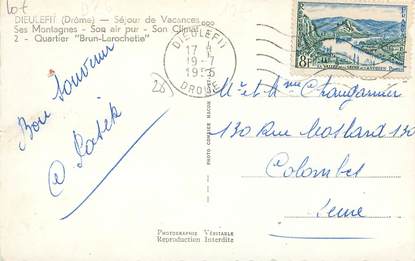 lot
DIEULEFIT (Drôme) — Séjour de Vacances...
Ses Montagnes - Son air pur - Son Climat
2 - Quartier "Brun-Larochette"
DIEULEFIT
17 H
19-7
1955
DROME
8F
26
Bon Souvenir
Mr et Mme Changarnier
130 Rue
130
Colombes
Seine
PHOTOGRAPHIE VÉRITABLE
Reproduction Interdite